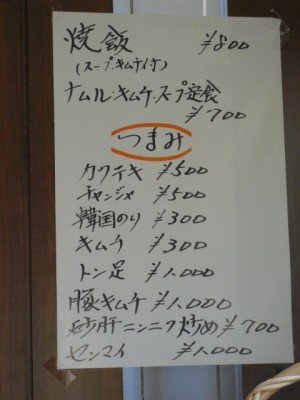 焼飯 ¥800
(スープ・キムチ付)
ナムル・キムチ・スープ定食
¥700
つまみ
カクテキ ¥500
チャンジャ ¥500
韓国のり ¥300
キムチ ¥300
トン足 ¥1.000
豚キムチ ¥1.000
砂肝ニンニク炒め ¥700
センマイ ¥1.000